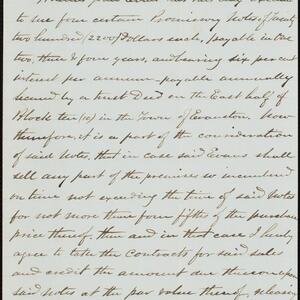 to me four certain Promissory Notes of Twenty
two hundred (2200) Dollars each, payable in One
two, three & four years, and bearing six per cent
interest per annum - payable annually
secured by a trust Deed on the East half of
Block ten (10) in the Town of Evanston. Now
therefore, it is a part of the consideration
of said Notes, that in case said Evans shall
sell any part of the premises so incumbered
on time not exceeding the time of said Notes
for not more than four fifths of the purchase
price thereof, then and in that case I hereby
agree to take the contracts for said sales
and credit the amount due thereon upon
said Notes at the par value thereof, releasing